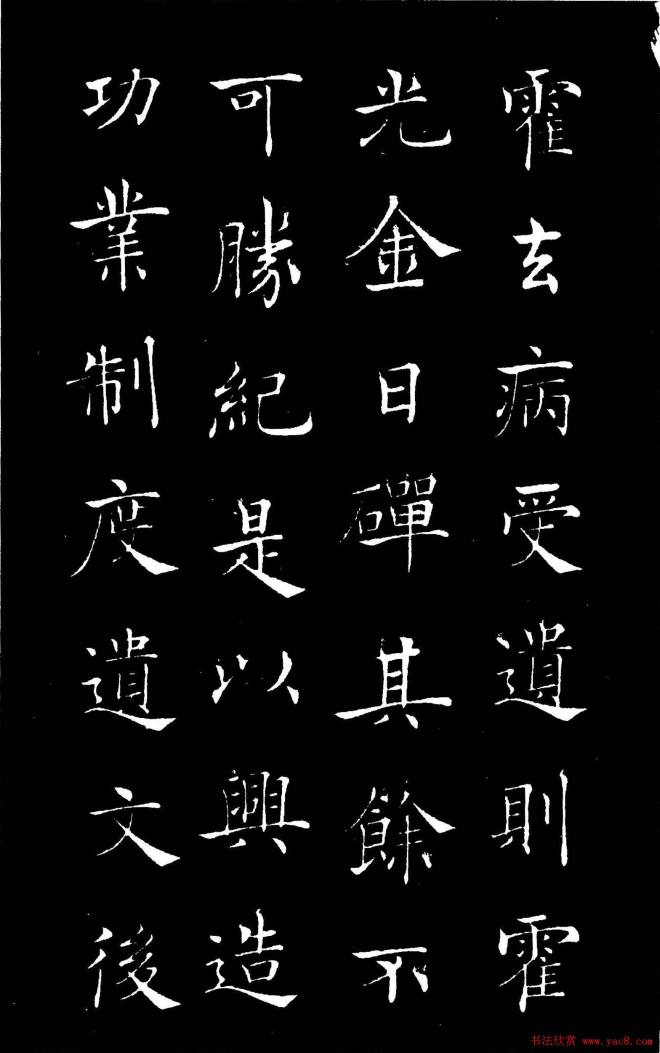 霍去病受遺則霍
光金日磾其餘不
可勝紀是以興造
功業制度遺文後
书法欣赏 www.yac8.com